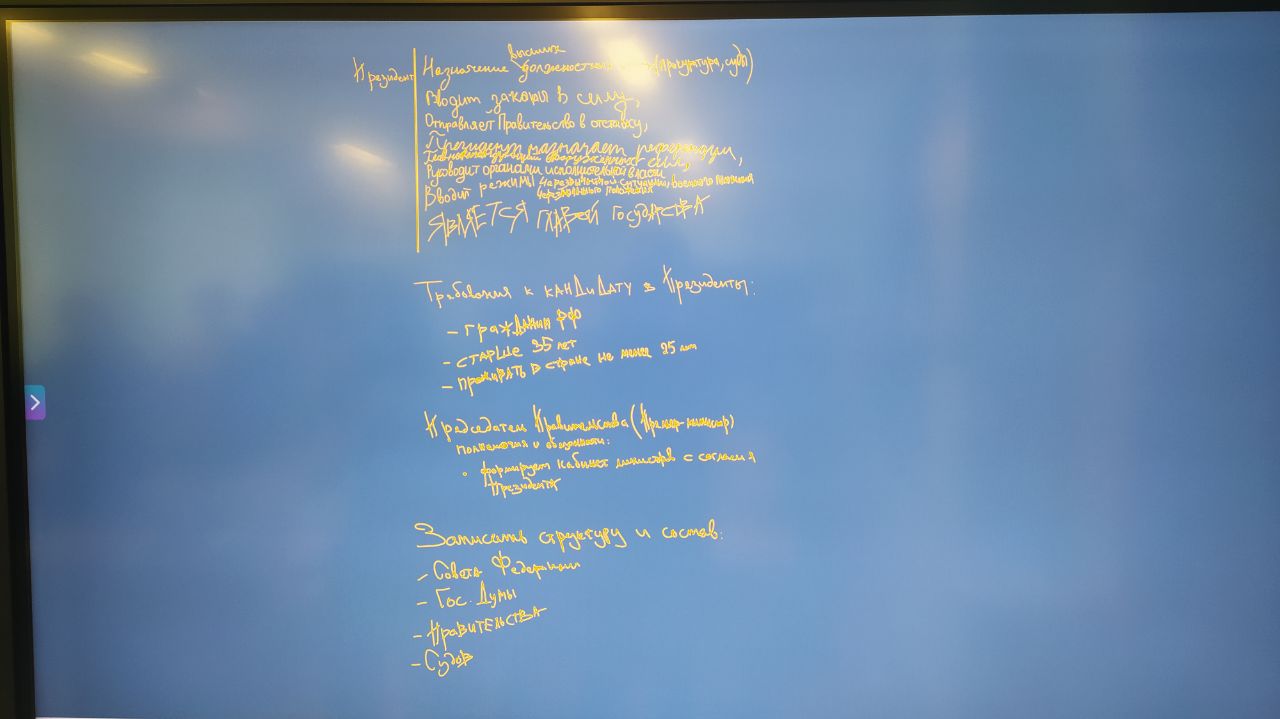 Президент
высших
Назначение должностных (прокуратура, суды)
Вводит закона в силу,
Отправляет Правительство в отставку,
Президент назначает референдум,
вооруженных сил,
Руководит органами исполнительной власти
Вводит режимы чрезвычайной ситуации, военного положения
чрезвычайного положения
ЯВЛЯЕТСЯ ГЛАВОЙ ГОСУДАРСТВА
Требования к КАНДИДАТУ в Президенты:
- гражданин РФ
- СТАРШЕ 35 лет
- проживать в стране не менее 25 лет
Председатель Правительства (Премьер-министр)
Полномочия и обязанности:
• формирует Кабинет министров с согласия
Президента
Записать структуру и состав:
- Совета Федерации
- Гос. Думы
- ПРАВИТЕЛЬСТВА
- Судов